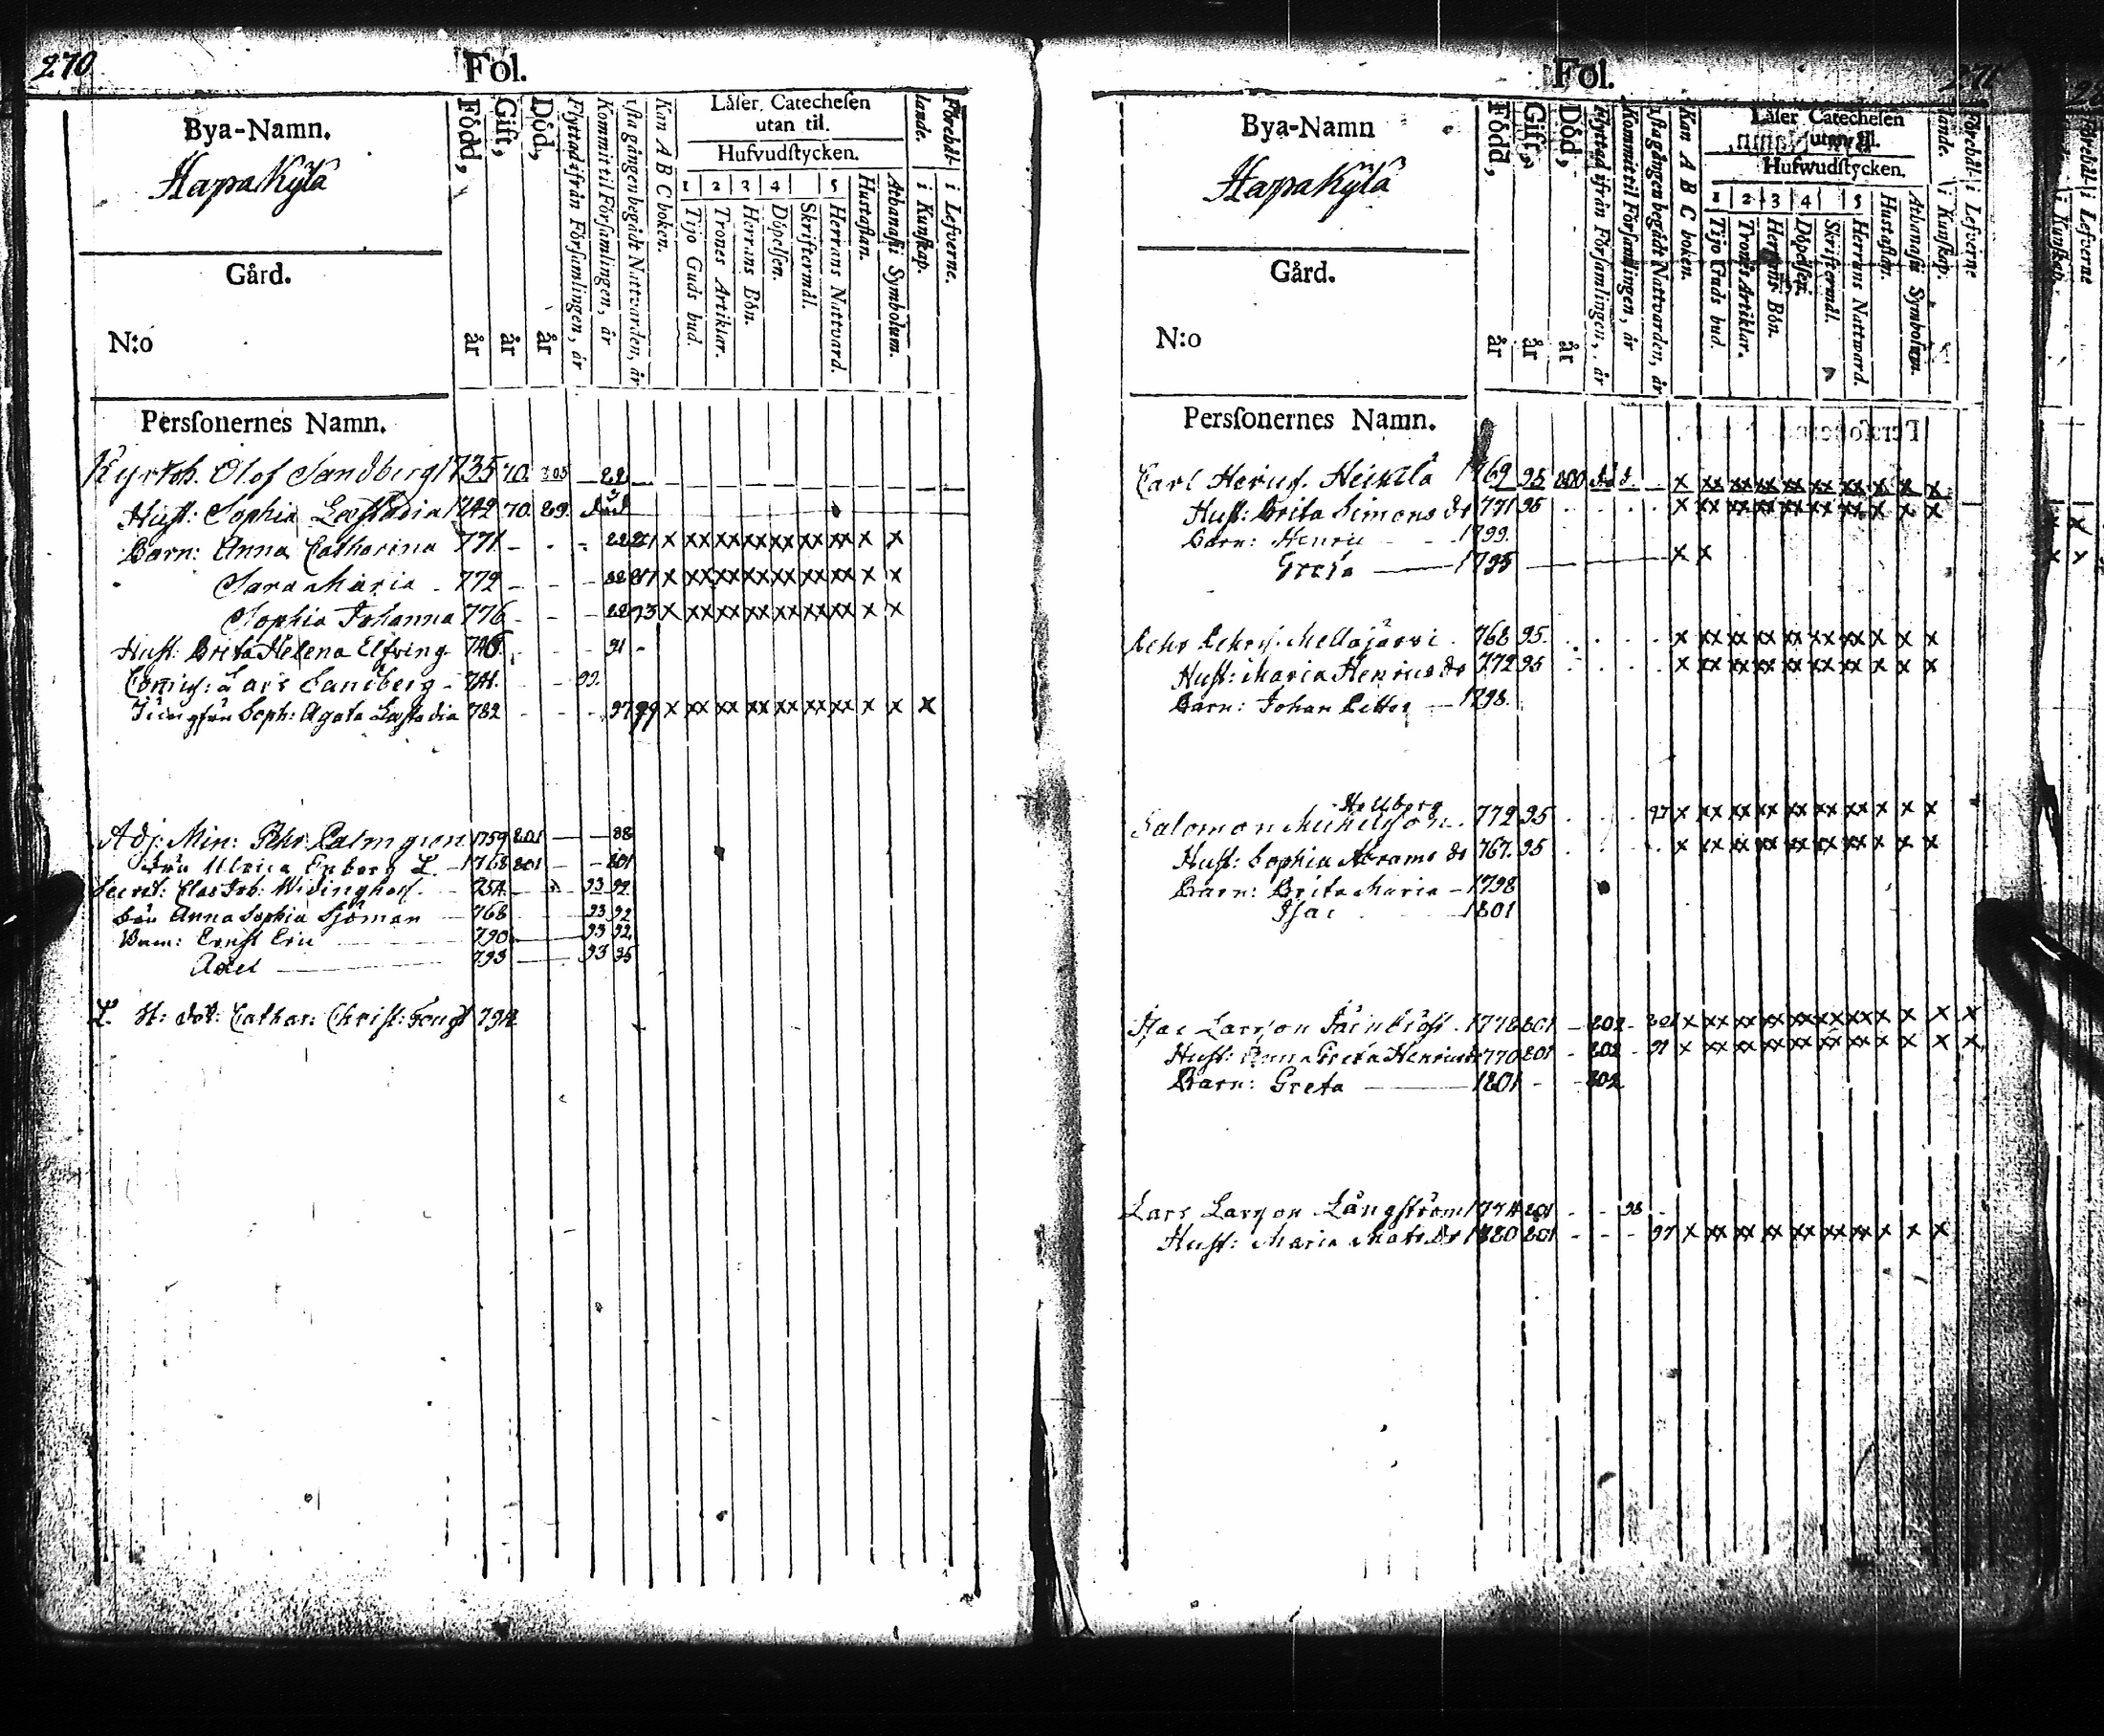 270
Fol.
Bya-Namn.
HapaKylä
Gård.
N:o
Född, år
Gift, år
Död, år
Flyttad ifrån Församlingen, år
Kommit til Församlingen, år
1sta gången begådt Nattvarden, år
Kan A B C boken.
Läser Catechesen utan til.
Hufvudstycken.
1 2 3 4 5
Tijo Guds bud.
Trones Artiklar.
Herrans Bön.
Döpelsen.
Skriftermål.
Herrans Nattvard.
Hustaflan.
Athanasii Symbolum.
Förehållande. i Kunskap.
i Lefverne.
Personernes Namn.
Kyrkoh. Olof Sandberg 1735 70. 805 88
Hust: Sophia Læstadia 1742 70. 89. död
Barn: Anna Catharina 771 - - - 88 x xx xx xx xx xx xx x x
Sara Maria 772 - - - 88 87 x xx xx xx xx xx xx x x
Sophia Johanna 776 - - - 88 93 x xx xx xx xx xx xx x x
Hust: Brita Helena Elfving 91 -
Lars Sandberg 99.
Jungfrun Soph: Agata Læstadia 782 - - - 97 99 x xx xx xx xx xx xx x x x
Adj: Min: Pehr Palmgren 1759 801 — — 88
Fru Ulrica Enberg L. 1768 801 — — 801
Secret: 754 93 92
Fru Anna Sophia Sjöman 768 93 92
Barn: Ernst Eric 790 93 92
Axel 793 93 95
L. H: dot: Cathar: Christ: 794
271
Fol.
Bya-Namn
HapaKylä
Gård.
N:o
Född, år
Gift, år
Död, år
Flyttad ifrån Församlingen, år
Kommit til Församlingen, år
1sta gången begådt Nattvarden, år
Kan A B C boken.
Läser Catechesen utan til.
Hufwudstycken.
1 2 3 4 5
Tijo Guds bud.
Trones Artiklar.
Herrans Bön.
Döpelsen.
Skriftermål.
Herrans Nattward.
Hustaflan.
Athanasii Symbolum.
Förehållande. i Kunskap.
i Lefverne
Personernes Namn.
Carl Henrics. Heikkilä 1769 95 800 död x xx xx xx xx xx xx x x x
Hust: Brita Simons dr 771 95 x xx xx xx xx xx xx x x x
Barn: Henric 1799.
Greta 1795 x x
Pehr Pehrs. Mellajärvi 768 95. x xx xx xx xx xx xx x x x
Hust: Maria Henrics dr 772 95 x xx xx xx xx xx xx x x x
Barn: Johan Petter 1798.
Hellberg
Salomon Michelsson 772 95 97 x xx xx xx xx xx xx x x x
Hust: Sophia Abrams dr 767. 95 x xx xx xx xx xx xx x x x
Barn: Brita Maria 1798
Isac 1801
Isac Larsson 1778 801 - 802 - 801 x xx xx xx xx xx xx x x x x
Hust: Anna Greta Henricsdr 770 801 - 802 - 91 x xx xx xx xx xx xx x x x x
Barn: Greta 1801 - - 802
Lars Larsson Långström 1774 801 - - 98 -
Hust: Maria Mats Dr 1780 801 - - - 97 x xx xx xx xx xx xx x x x